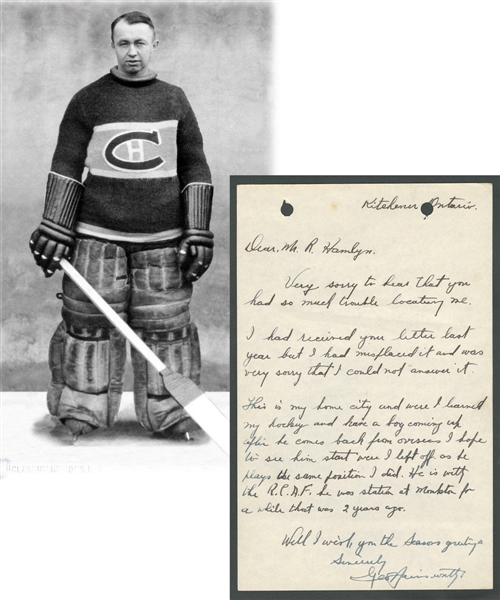 CH
Kitchener Ontario.
Dear, Mr. R. Hamlyn.
Very sorry to hear that you
had so much trouble locating me.
I had received your letter last
year but I had misplaced it and was
very sorry that I could not answer it.
This is my home city and were I learned
my hockey and have a boy coming up
after he comes back from overseas I hope
to see him start were I left off. as he
plays the same position I did. He is with
the R.C.A.F. he was station at Monkton for
a while that was 2 years ago.
Well I wish, you the Seasons greetings
Sincerely
Geo Hainsworth.